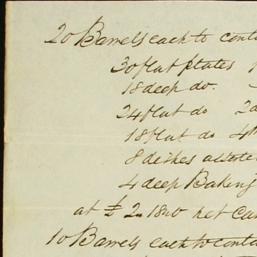 20 Barrels each to conta
30 flat plates
18 deep do.
24 flat do 2d
18 flat do 4th
8 dishes assorte
4 deep Baking
at £ 2.. 18..0 net Car
10 Barrels each to conta